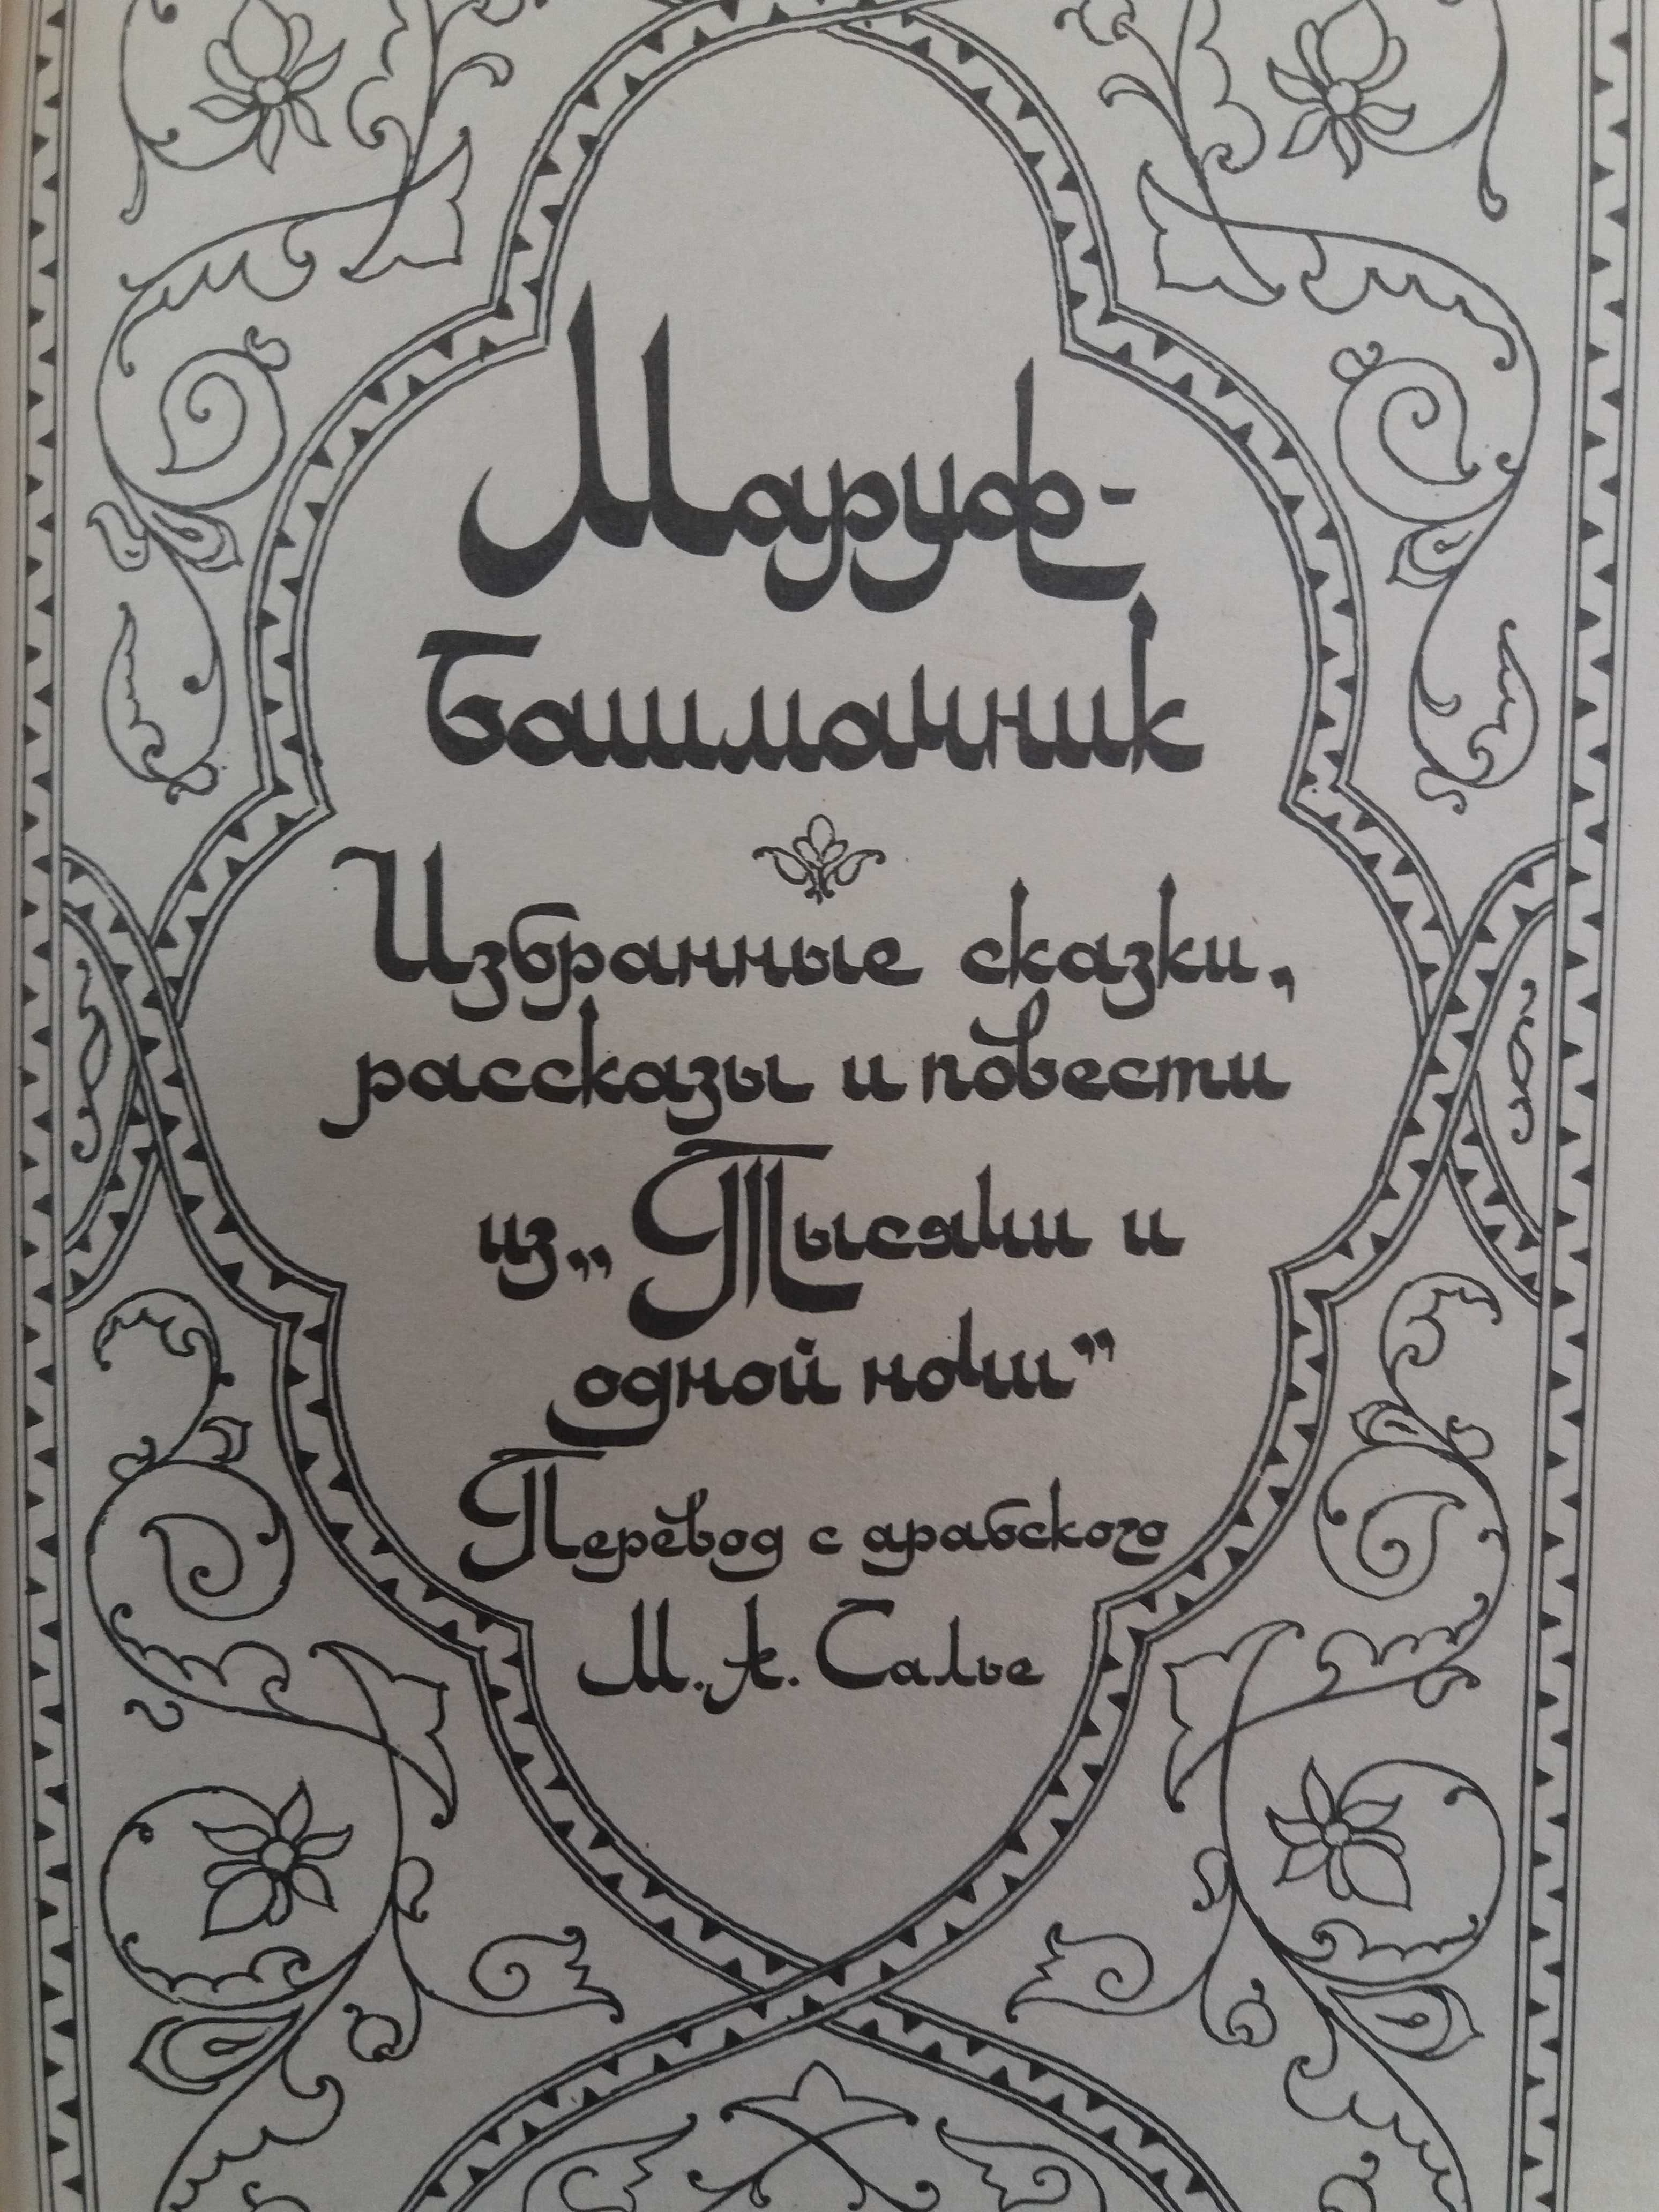 Маруф-
башмачник
Избранные сказки,
рассказы и повести
из „Тысячи и
одной ночи”
Перевод с арабского
М. А. Салье